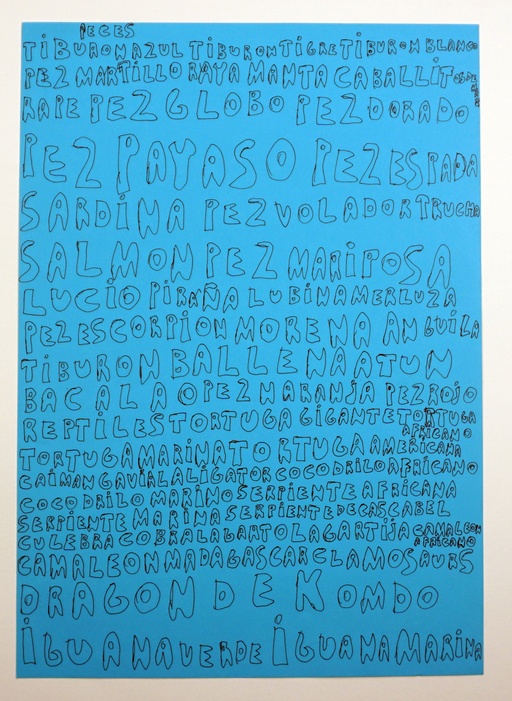 PECES
TIBURON AZUL TIBURON TIGRE TIBURON BLANCO
PEZ MARTILLO RAYA MANTA CABALLITO DE
RAPE PEZ GLOBO PEZ DORADO
PEZ PAYASO PEZ ESPADA
SARDINA PEZ VOLADOR TRUCHA
SALMON PEZ MARIPOSA
LUCIO PIRAÑA LUBINA MERLUZA
PEZ ESCORPION MORENA ANGUILA
TIBURON BALLENA ATUN
BACALAO PEZ NARANJA PEZ ROJO
REPTILES TORTUGA GIGANTE TORTUGA
AFRICANO
TORTUGA MARINA TORTUGA AMERICANA
CAIMAN GAVIAL ALIGATOR COCODRILO AFRICANO
COCODRILO MARINO SERPIENTE AFRICANA
SERPIENTE MARINA SERPIENTE DE CASCABEL
CULEBRA COBRA LAGARTO LAGARTIJA CAMALEON
AFRICANO
CAMALEON MADAGASCAR CLAMOSAURS
DRAGON DE KOMDO
IGUANA VERDE IGUANA MARINA